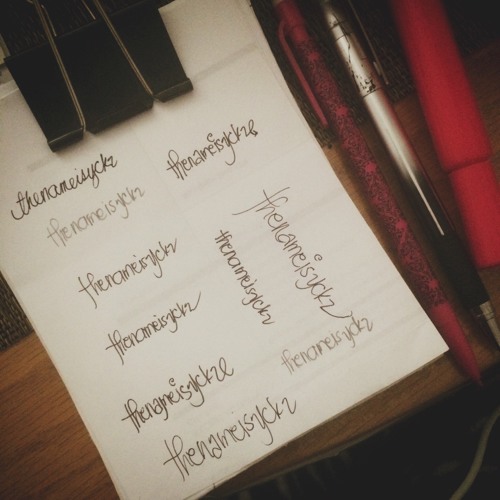 thenameisyckz
thenameisyckze
thenameisyckz
thenameisyckz
thenameisyckz
thenameisyckz
thenameisyckz
thenameisyckz
thenameisyckze
thenameisyckz